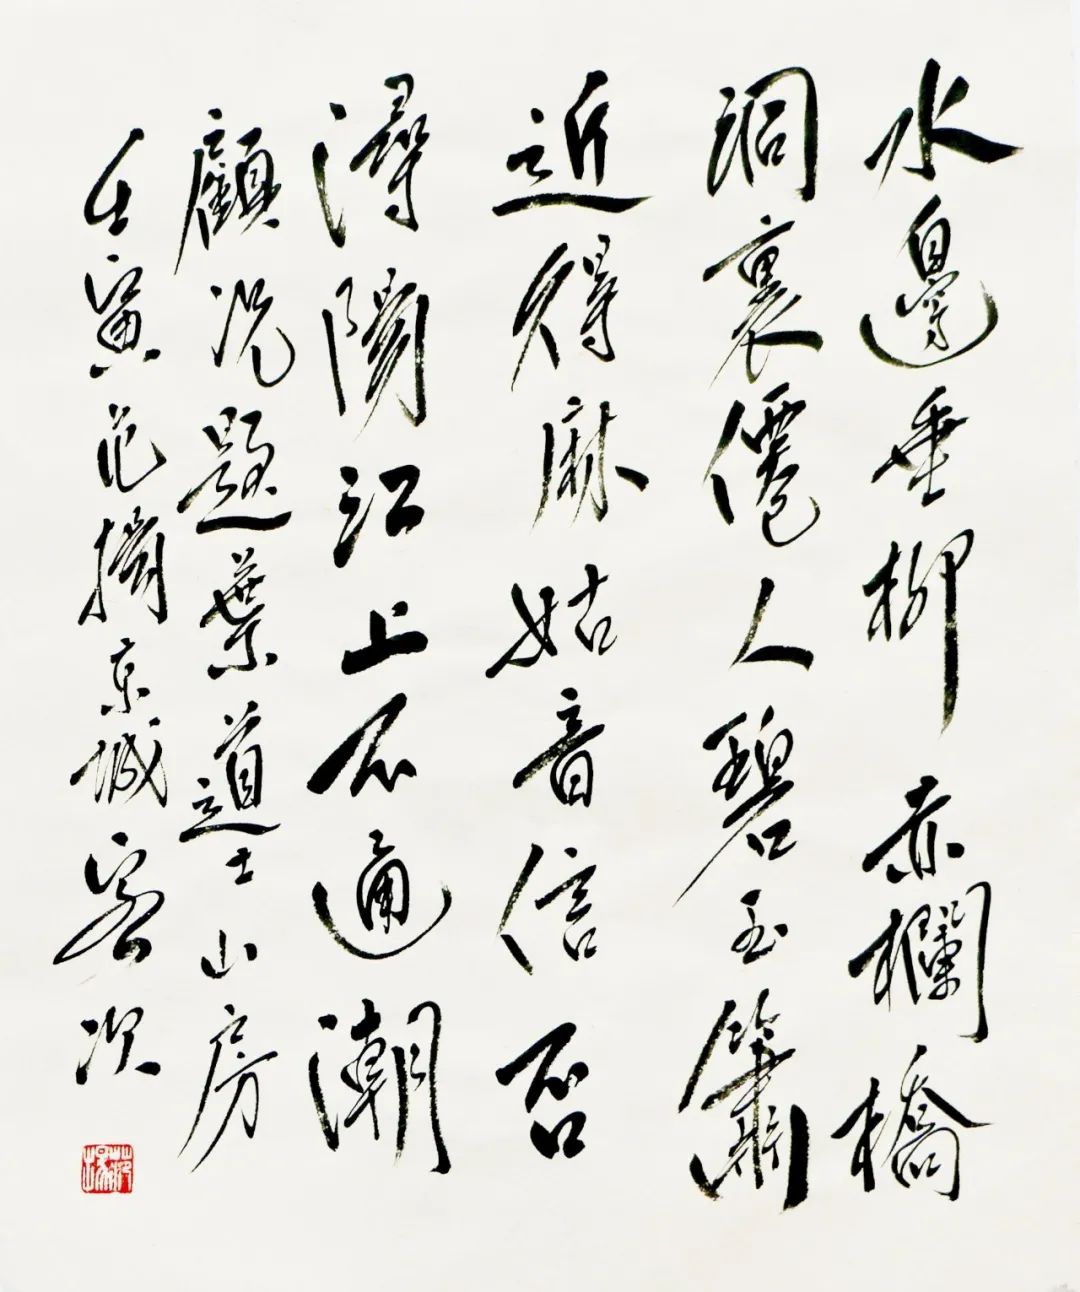 水邊垂柳赤欄橋
洞裏僊人碧玉簫
近得麻姑音信否
潯陽江上不通潮
顧況題葉道士山房
壬寅范揚京城客次
范揚